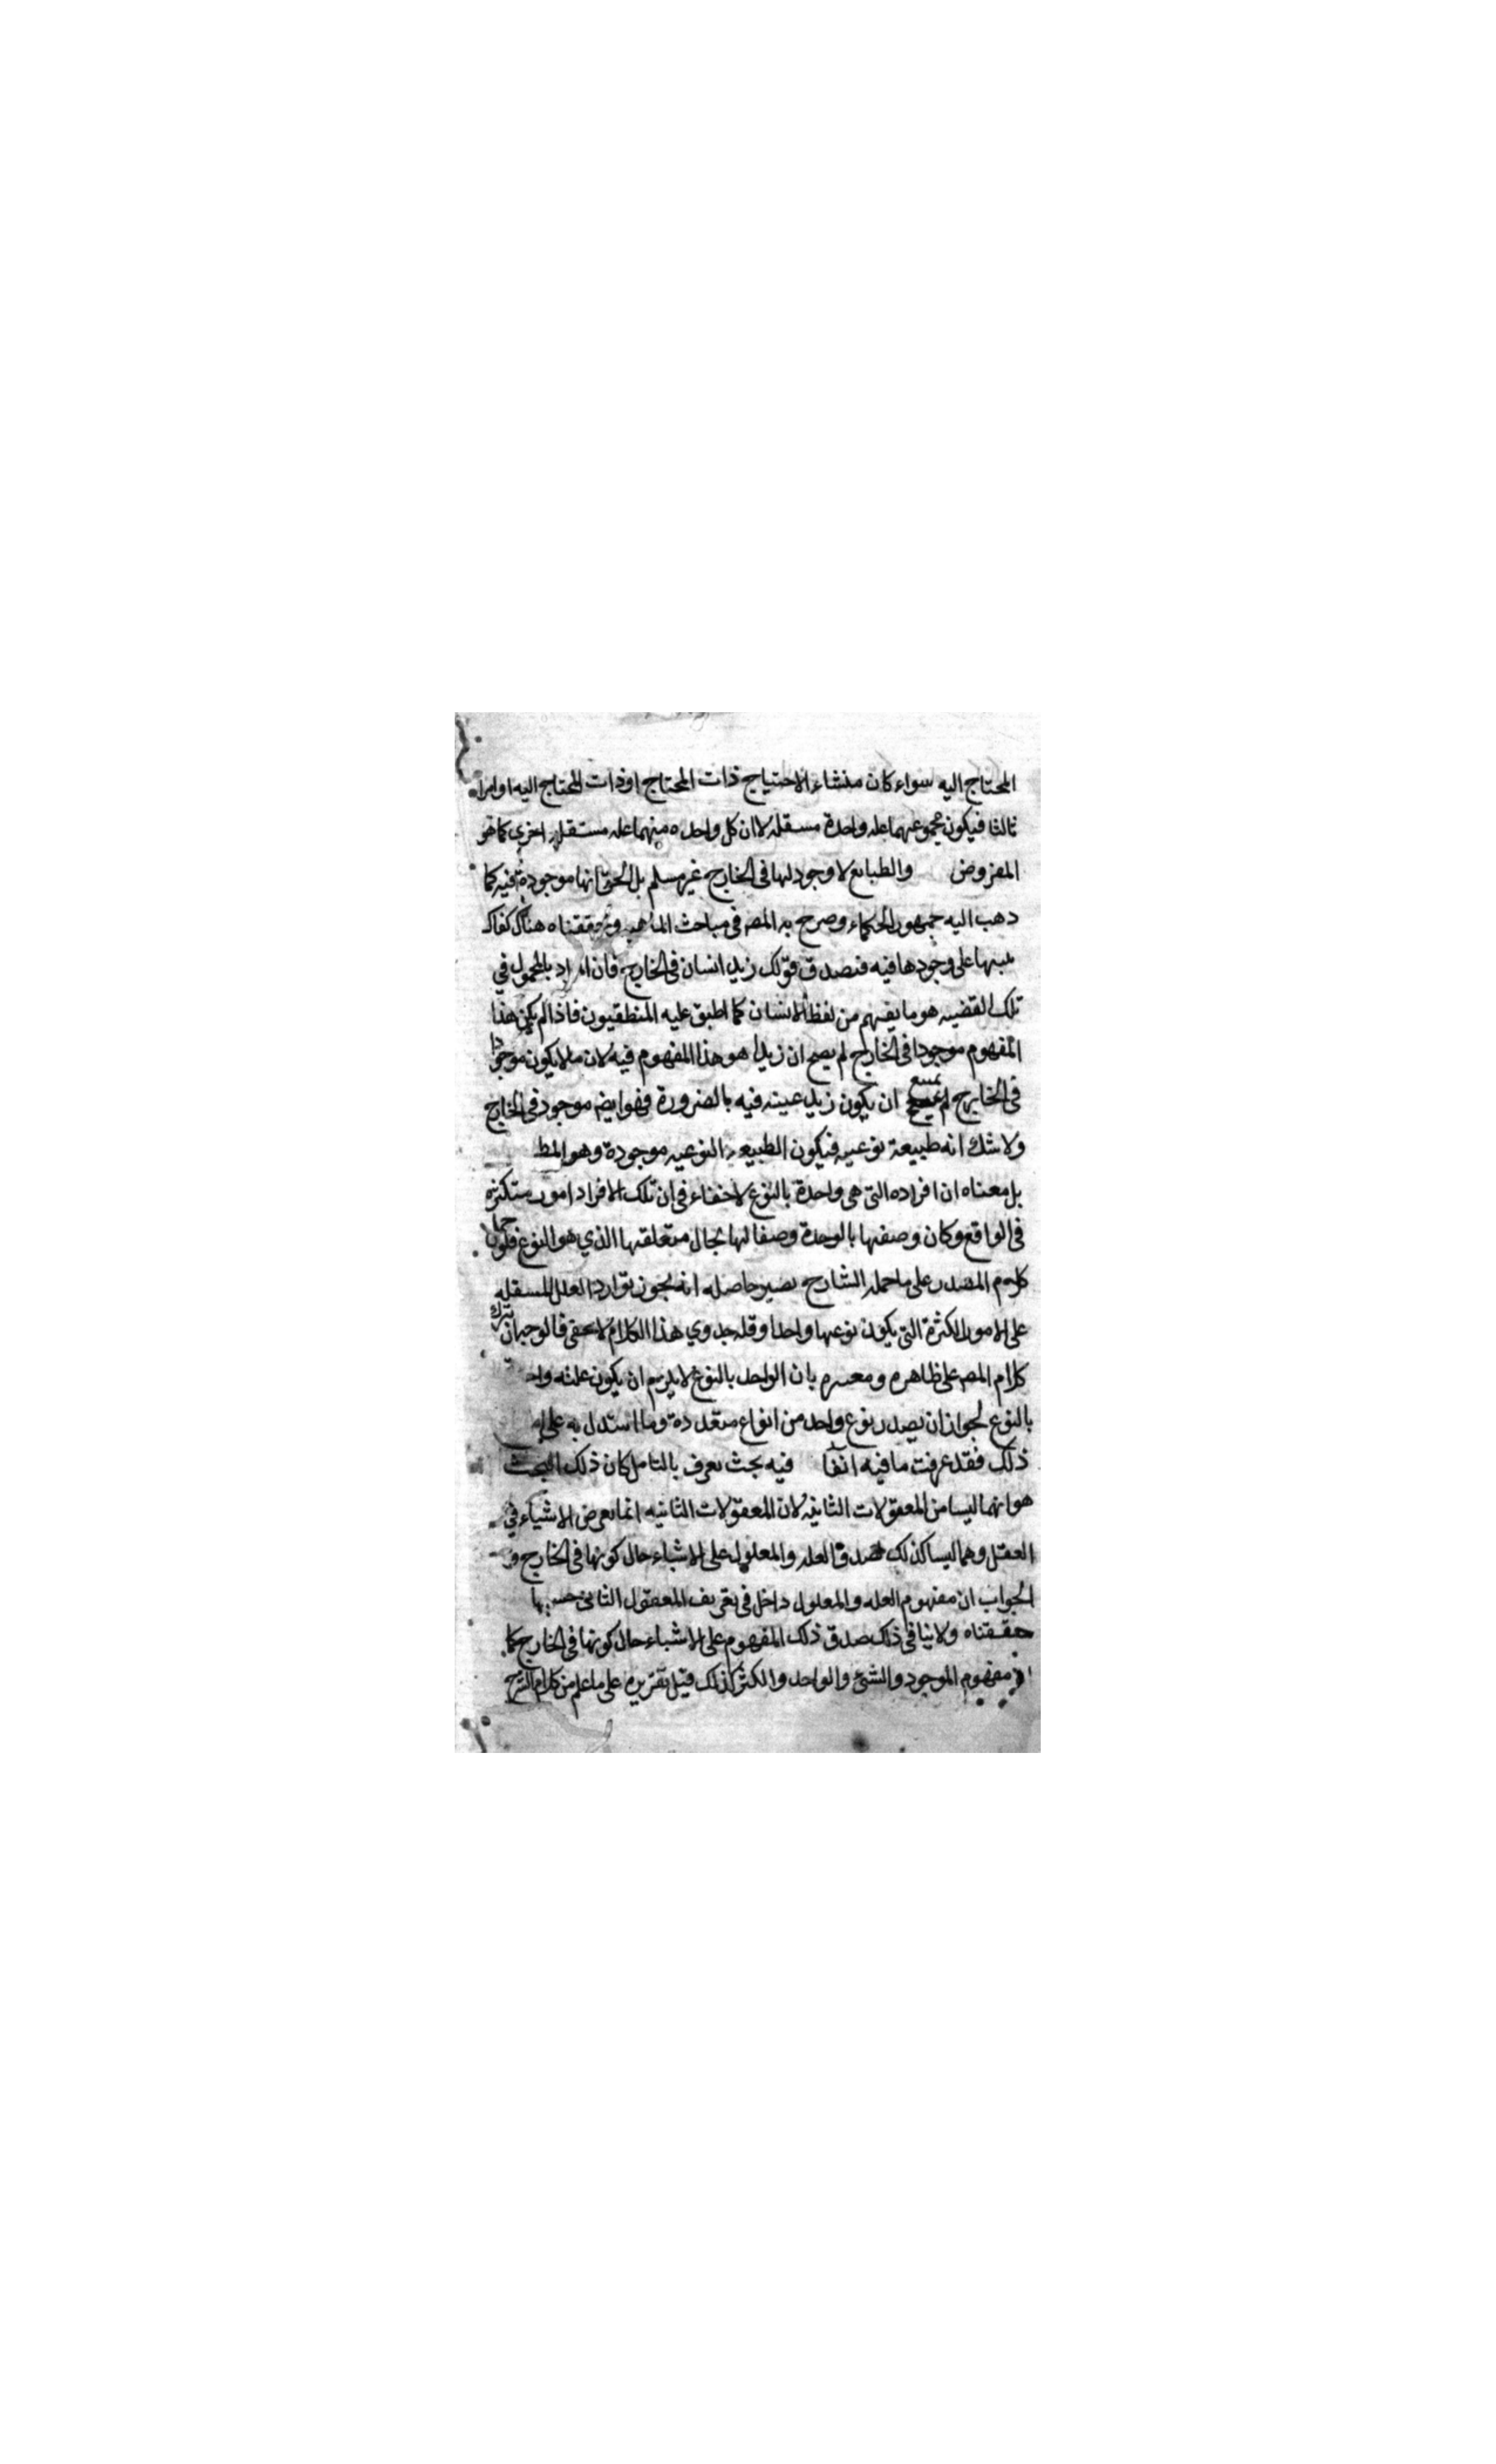 المحتاج اليه سواء كان منشاء الاحتياج ذات المحتاج او ذات المحتاج اليه او امرا
ثالثا فيكون مجموعهما عله واحدة مستقله لا ان كل واحده منهما عله مستقله اخرى كما هو
المفروض والطبايع لا وجود لها في الخارج غير مسلم بل الحق انها موجودة فيه كما
ذهب اليه جمهور الحكماء وصرح به المص في مباحث وحققناه هناك كفاك
منبها على وجودها فيه فنصدق قولك زيد انسان في الخارج فان المراد بالمحمول في
تلك القضيه هو ما يفهم من لفظ الانسان كما اطبق عليه المنطقيون فاذا لم يكن هذا
المفهوم موجودا في الخارج لم يصح ان زيدا هو هذا المفهوم فيه لان ما لا يكون موجودا
في الخارج يمتنع ان يكون زيد عينه فيه بالضرورة فهو ايضا موجود في الخارج
ولا شك انه طبيعة نوعيه فيكون الطبيعه النوعيه موجودة وهو المط
بل معناه ان افراده التي هي واحدة بالنوع لا خفاء في ان تلك الافراد امور متكثرة
في الواقع وكان وصفها بالوحدة وصفا لها بحال متعلقها الذي هو النوع فلو حمل
كلام المصدر على ما حمله الشارح يصير حاصله انه يجوز توارد العلل المستقله
على الامور الكثرة التي يكون نوعها واحدا وقله جدوي هذا الكلام لا يخفى فالوجه ان يترك
كلام المص على ظاهره ومعبره بان الواحد بالنوع لا يلزم ان يكون علته واحد
بالنوع لجواز ان يصدر نوع واحد من انواع متعددة وما استدل به على
ذلك فقد عرفت ما فيه انفا فيه بحث يعرف بالتامل كان ذلك البحث
هو انهما ليسا من المعقولات الثانيه لان المعقولات الثانيه انما يعرض الاشياء في
العقل وهما ليسا كذلك لصدق العله والمعلول على الاشياء حال كونها في الخارج و
الجواب ان مفهوم العله والمعلول داخل في تعريف المعقول الثاني حسبما
حققناه ولا ينافي ذلك صدق ذلك المفهوم على الاشياء حال كونها في الخارج كما
ان مفهوم الموجود والشئ والواحد والكثير كذلك قيل تقريره على ما علم من كلام الشرح